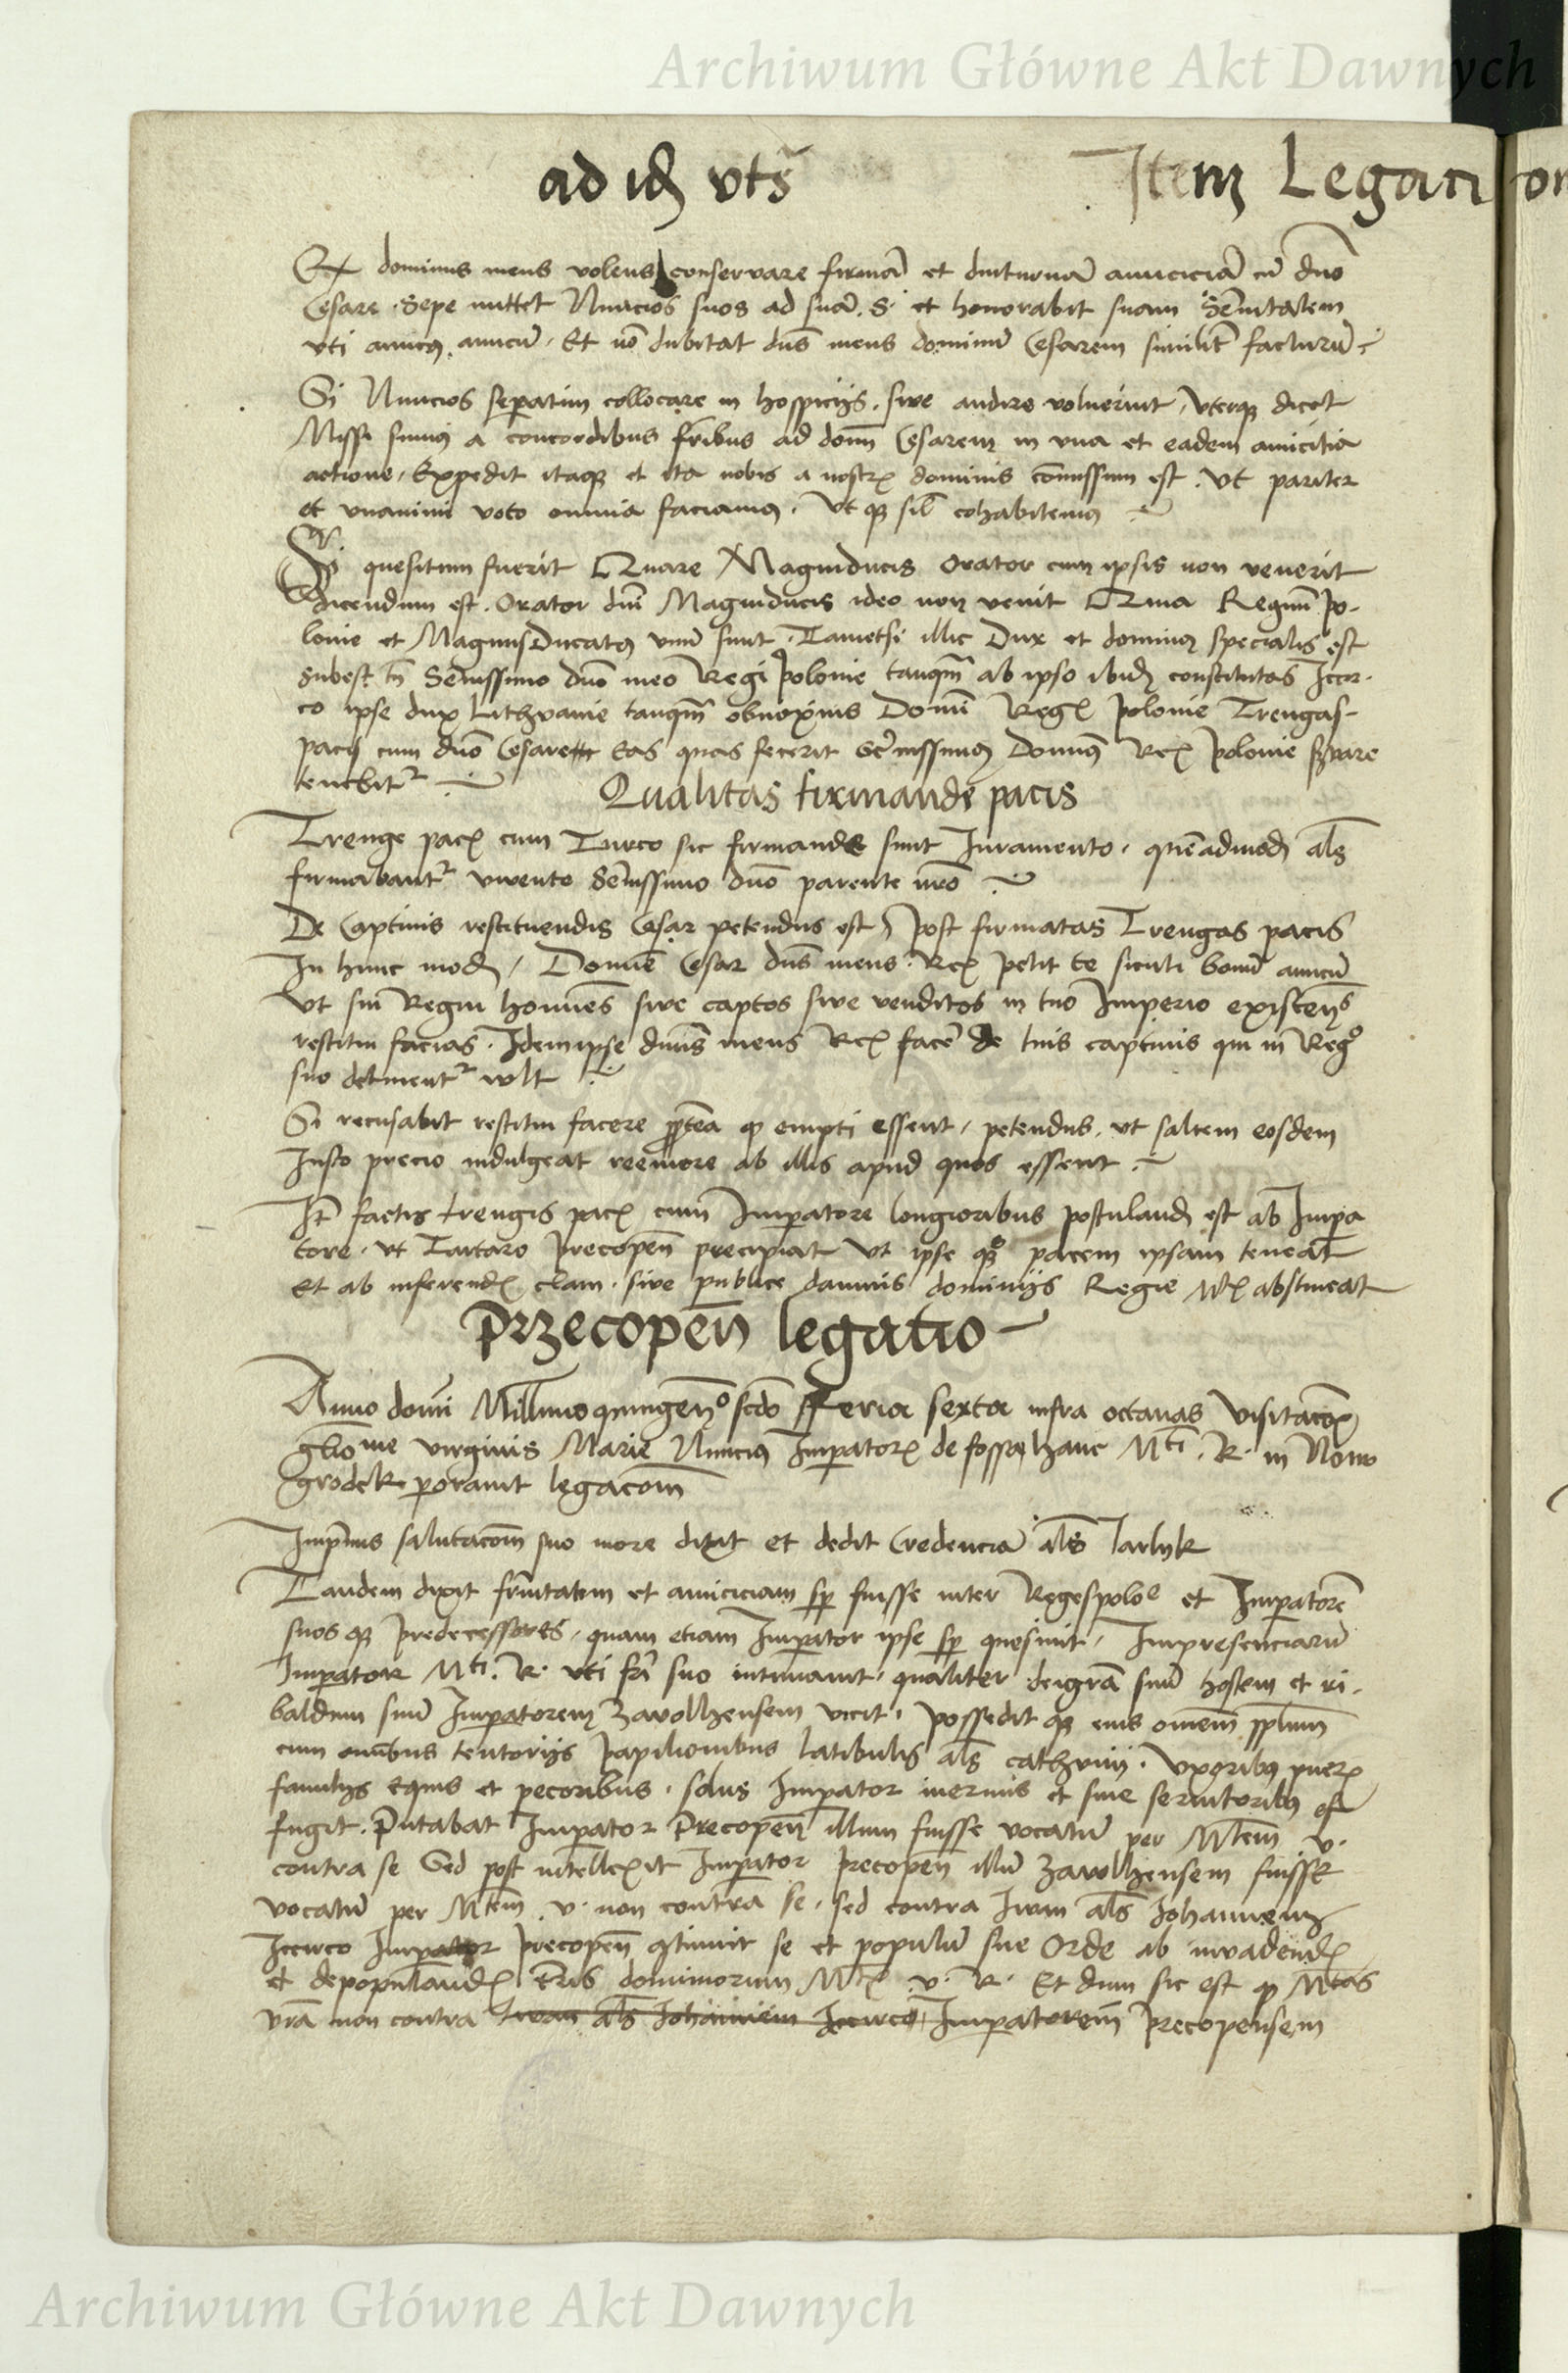 Archiwum Główne Akt Dawnych
ad id) vts
Item Legaci on
Et dominus meus volens conservare firmā et diuturnā amiciciā cū dno
Cesare. Sepe mittet Nuncios suos ad suā. S. et honorabit suam Sēnitatem
vti amicus amicū. Et nō dubitat dns meus dominū Cesarem similit facturū
Si Nuncios separatim collocare in hospicijs. sive audire voluerint, vterque dicet
Missi sumus a concordibus frībus ad domn Cesarem in vna et eadem amicitia
actione, Expedit itaque et ita nobis a nostrꝭ dominis cōmissum est. vt pariter
et vnanimi voto omnia faciamus. vt que sil cohabitemus
Si quesitum fuerit Quare Magniducis orator cum ipsis non venerit
dicendum est. Orator dni Magniducis ideo non venit Quia Regnū Po-
lonie et Magnus Ducatus vnū sunt. Tametsi illic Dux et dominus specialis est
subest tn Sēnissimo duō meo Regi Polonie tanqm̄ ab ipso ibid) constitutus Iccir.
co ipse dux Lithvanie tanqm̄ obnoxius Domi Regꝭ Polonie Trengas-
pacis cum dnō Cesare eas quas fecerit Sēnissimus Domns Rex Polonie servare
tenebitr
Qualitas firmande pacis
Trenge pacꝭ cum Turco sic firmande sunt Iuramento. quēadmod) als
firmabantr vivente Sēnissimo dnō parente nrō
De Captivis restituendis Cesar petendus est) post firmatas Trengas pacis
In hunc mod) / Domnē Cesar dns meus Rex petit te sicuti bonū amicū
vt sui Regni homines sive captos sive venditos in tuo Imperio existēns
restitui facias. Idem ipse dnus meus Rex facē de tuis captivis qui in Regᵒ
suo detinentr wlt
Si recusabit restitui facere ꝓptea quod empti essent, petendus. vt saltem eosdem
Iusto precio indulgeat reemere ab illis apud quos essent.
It factis trengis pacꝭ cum Imperatore longioribus postuland) est ab Impa
tore. vt Tartaro Precopen̄ precipiat vt ipse qꝫ pacem ipsam teneat
Et ab inferendꝭ clam. sive publice damnis dominijs Regie Mtꝭ abstineat
Przecopen̄ legatio
Anno domi Millmo quingenᵒ scdo Fferia sexta infra octavas Visitacōꝭ
glorᵐᵉ virginis Marie Nuncius Imperatorꝭ de fossa hanc Mti. R. in Nono
grodek ꝑoravit legacōm
Impmis salutacōm suo more dixit et dedit Credenciā als Iarlyk
Tandem dixit frnitatem et amiciciam sp fuisse inter Reges poloᵉ et Imperatorē
suosque Predecessores, quam etiam Imperator ipse sp quesivit, Impresenciarū
Imperator Mti. R. vti frī suo intimavit, qualiter dei grā suū hostem et ri-
baldum suū Imperatorem Zavolhensem vicit, Possedit que eius omnem pplum
cum omībus tentorijs Papilionibus latibulis als cathvuij. Vxoribus puerꝭ
famulijs Equis et pecoribus. solus Imperator inermis et sine servitoribus ef
fugit. Putabat Imperator Precopen̄ illum fuisse vocatū per Mtem v.
contra se Sed post intellexit Imperator Precopen̄ illū Zavolhensem fuisse
vocatū per Mtem. v. non contra se. sed contra Iwan als Iohannem
Iccirco Imperator Precopen̄ ꝯtinuit se et populū sue Orde ab invadendꝭ
et depopulandꝭ tris dominiorum Mtꝭ. v. R. Et dum sic est quod Mtas
vrā non contra Iwan als Iohannem Iccirco, Imperatorem Precopensem
Archiwum Główne Akt Dawnych